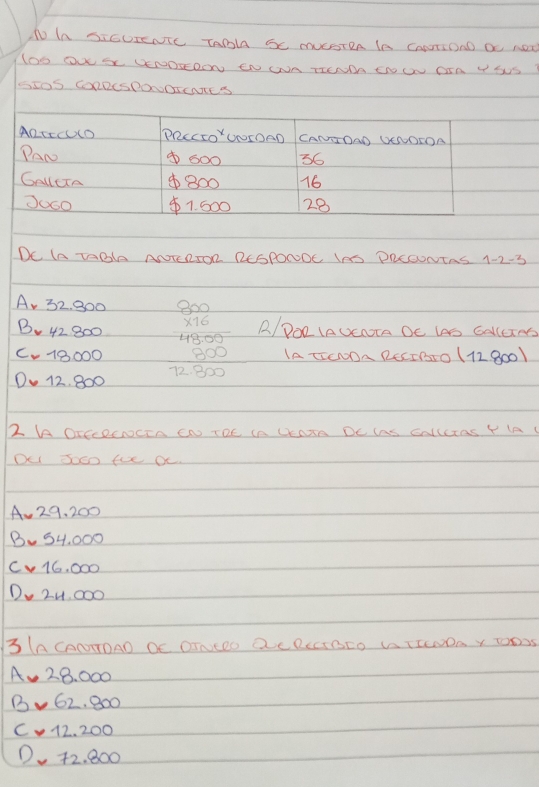 N la SIGUIENTE TABLA SE MUESTRA LA CANTIDAD DE
LOS QUE SE VENDIERON EN UNA TIENDA EN UN DIA Y SUS
CORRESPONDIENTES
ARTICULO PRECIO X UNIDAD CANTIDAD VENDIDA
PAN $ 500 36
GALLETA $ 800 16
JUGO $ 1.500 28
DE LA TABLA ANTERIOR RESPONDE LAS PREGUNTAS 1-2-3
A. 32.800
B. 42 800
C. 18.000
D. 12.800
800
x16
48.00
800
12.800
R/ POR LA VENTA DE LAS GALLETAS
LA TIENDA RECIBIO (12 800)
2 LA DIFERENCIA EN TRE LA VENTA DE LAS GALLETAS Y LA
DEL JUGO FUE DE
A. 29.200
B. 54.000
C. 16.000
D. 24.000
3 LA CANTIDAD DE DINERO QUE RECIBIO LA TIENDA X TODOS
A. 28.000
B. 62.800
C. 12.200
D. 72.800